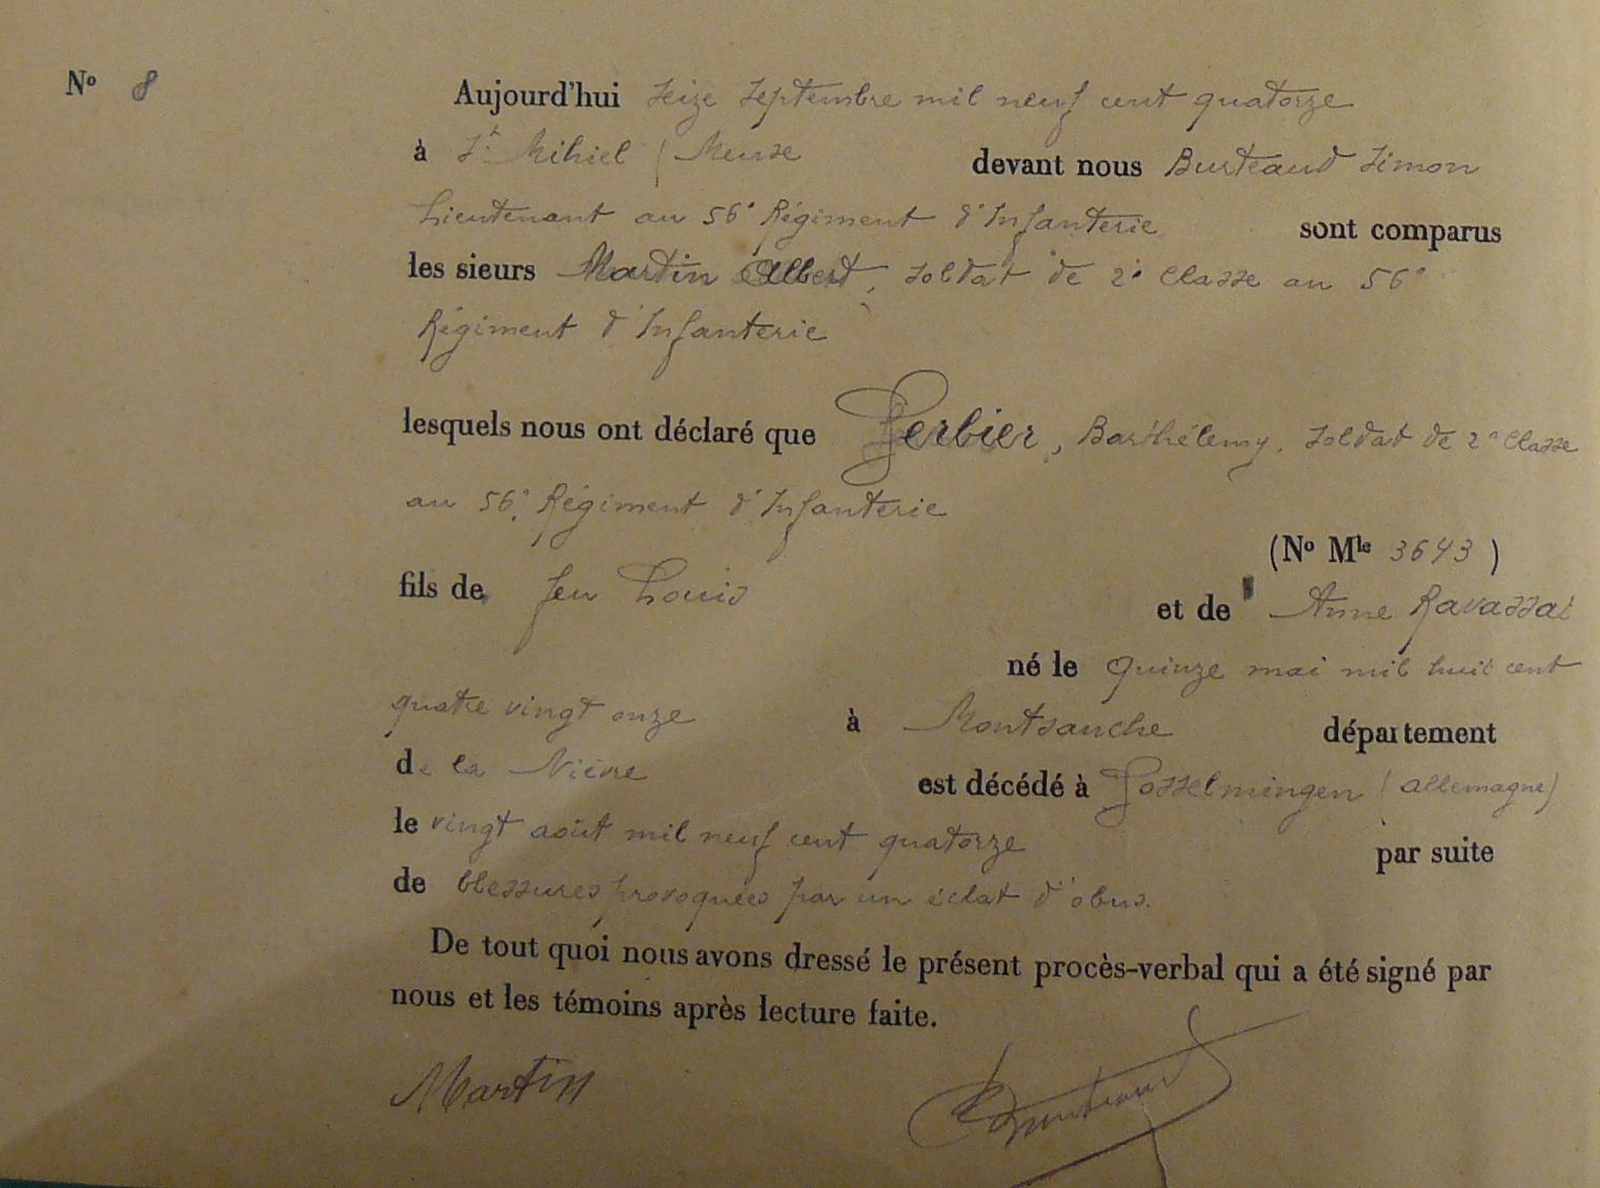 N° 8
Aujourd'hui Seize Septembre mil neuf cent quatorze
à St Mihiel (Meuse devant nous Burteaud Simon
Lieutenant au 56e Régiment d'Infanterie sont comparus
les sieurs Martin Albert, soldat de 2e Classe au 56e
Régiment d'Infanterie
lesquels nous ont déclaré que Gerbier, Barthélemy, soldat de 2e Classe
au 56e Régiment d'Infanterie
(N° Mle 3643)
fils de feu Louis et de Anne
né le Quinze mai mil huit cent
quatre vingt onze à Montsauche département
de la Nièvre est décédé à Gosselmingen (Allemagne)
le vingt août mil neuf cent quatorze par suite
de blessures provoquées par un éclat d'obus.
De tout quoi nous avons dressé le présent procès-verbal qui a été signé par
nous et les témoins après lecture faite.
Martin Burteaud